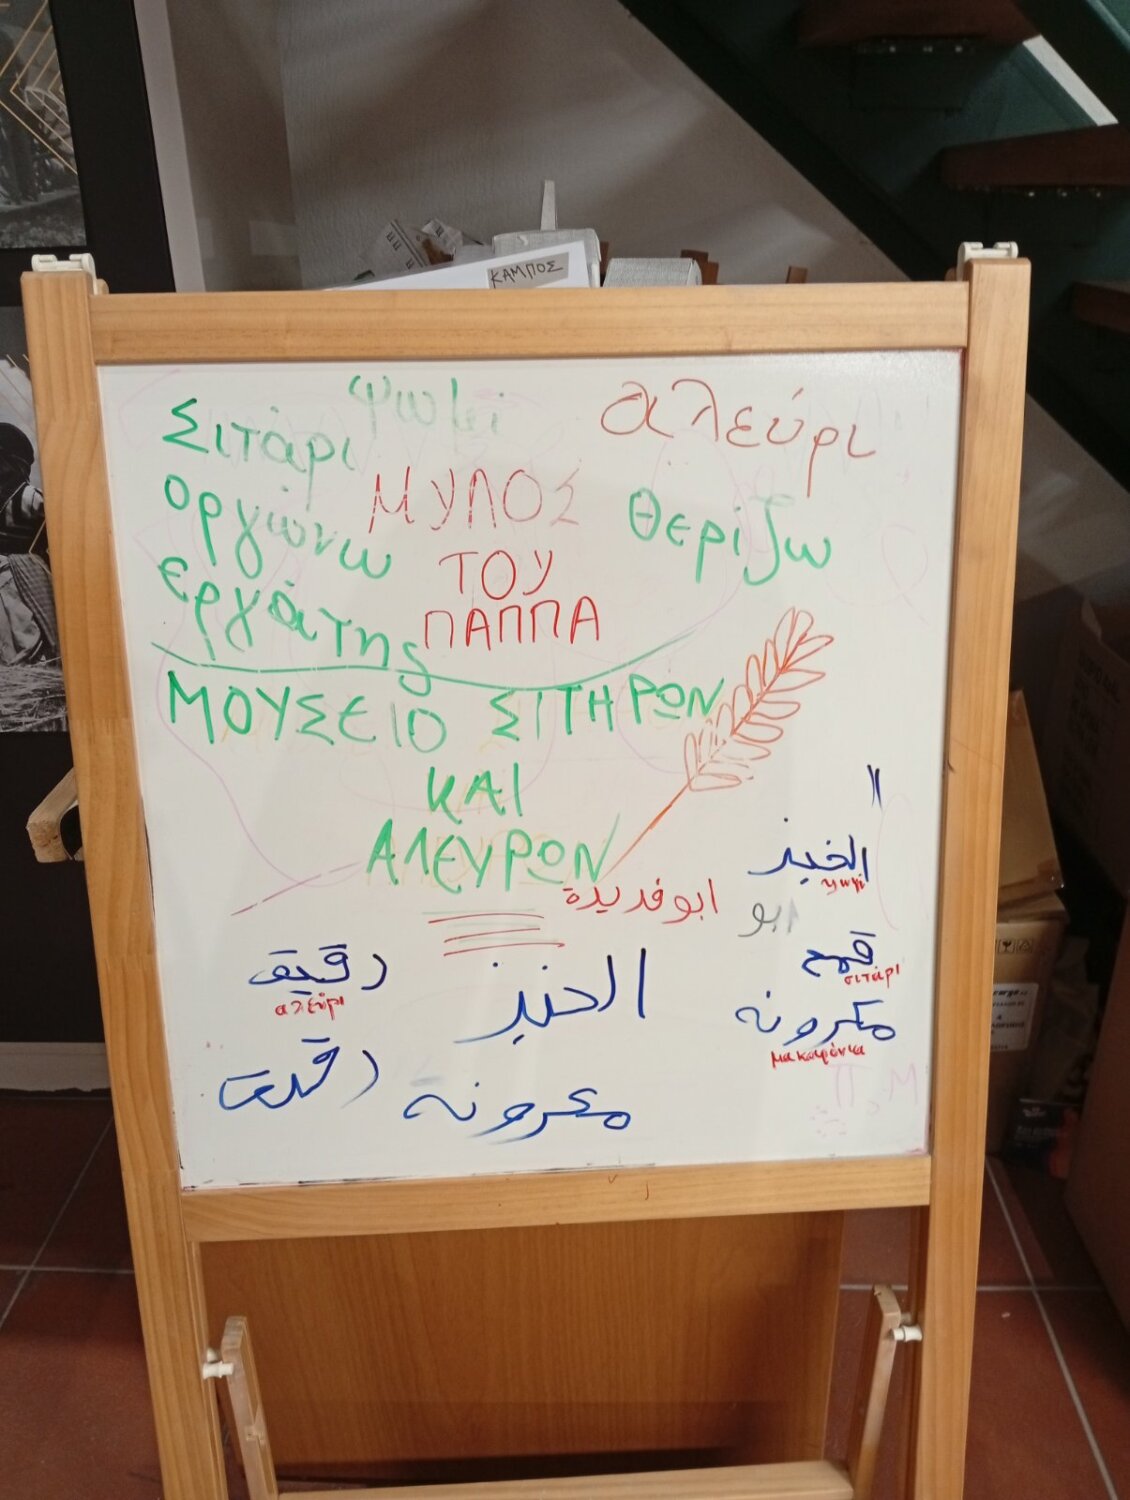 ΚΑΜΠΟΣ
ψωμί
αλεύρι
Σιτάρι
ΜΥΛΟΣ
οργώνω
θερίζω
ΤΟΥ
εργάτης
ΠΑΠΠΑ
ΜΟΥΣΕΙΟ ΣΙΤΗΡΩΝ
ΚΑΙ
ΑΛΕΥΡΩΝ
الخبز
ψωμί
ابوفديدة
ابو
قمح
σιτάρι
دقيق
αλεύρι
الخبز
مكرونه
μακαρόνια
دقيق
مكرونه
Π.Μ